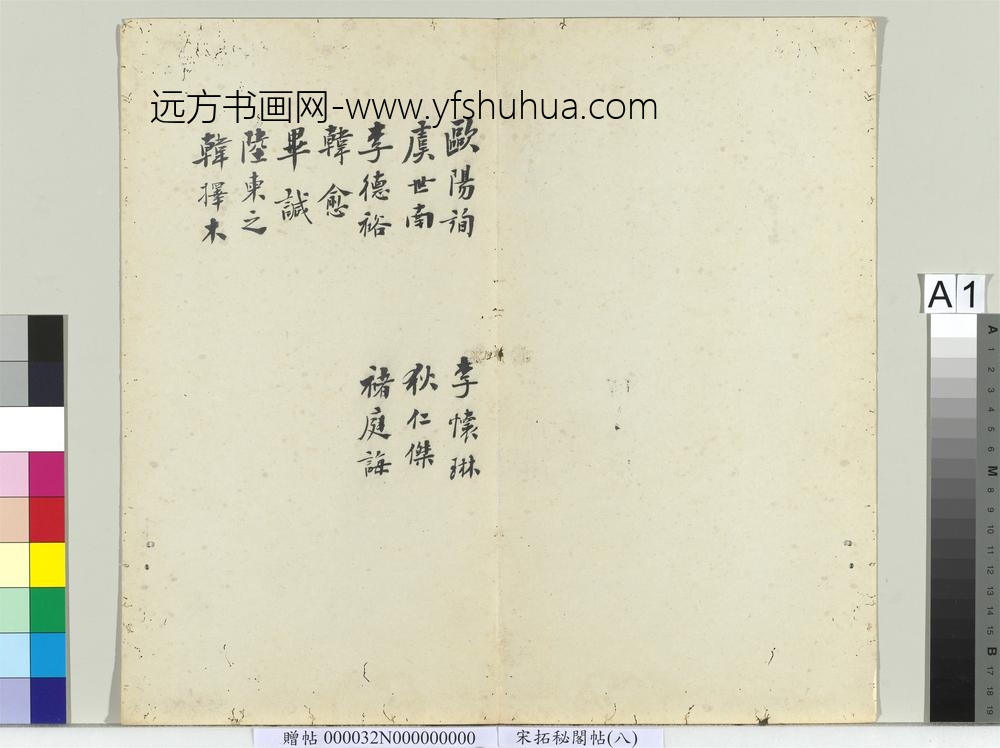 远方书画网-www.yfshuhua.com
歐陽詢
虞世南
李德裕
韓愈
畢諴
陸柬之
韓擇木
李懷琳
狄仁傑
褚庭誨
A 1
A 1 2 3 4 5 6 M 8 9 10 11 12 13 14 15 B 17 18 19
贈帖 000032N000000000 宋拓秘閣帖(八)